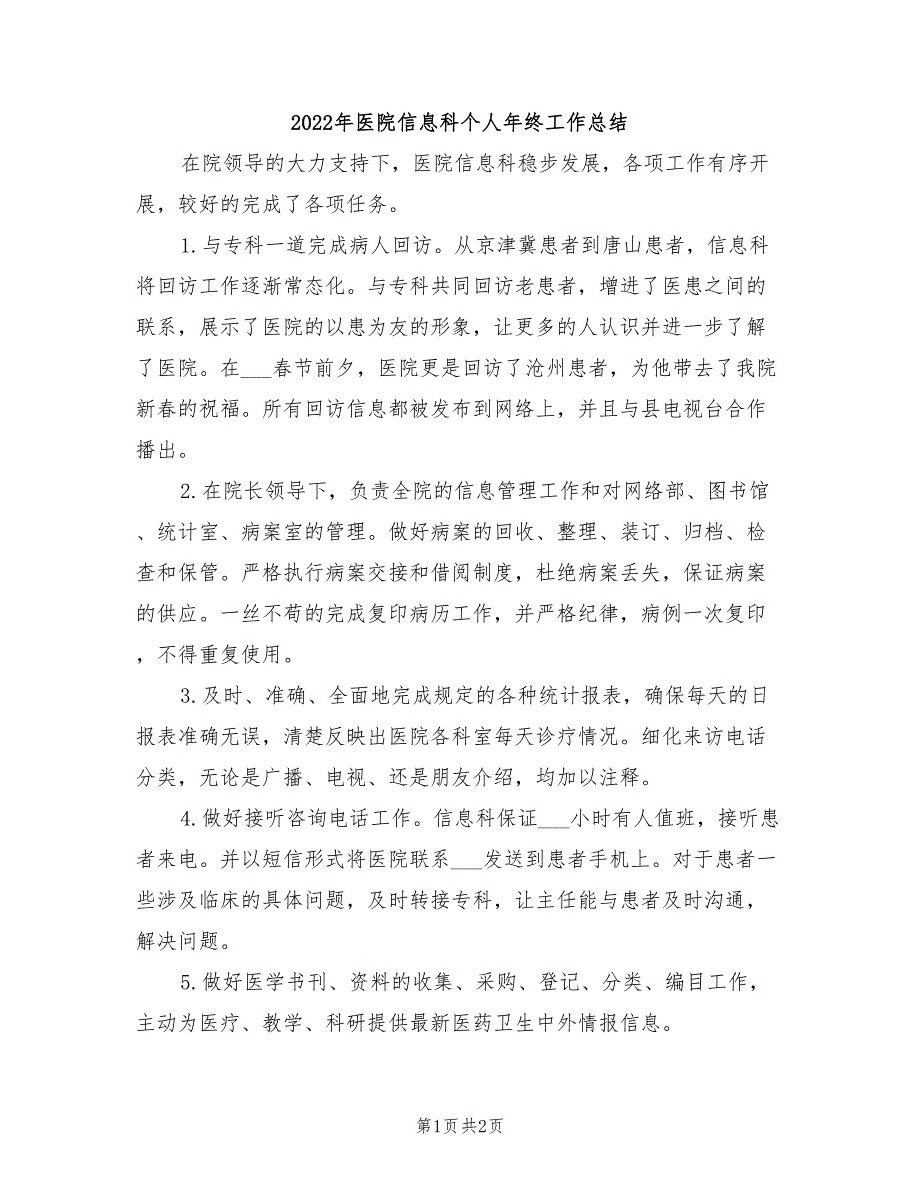 2022年医院信息科个人年终工作总结
在院领导的大力支持下，医院信息科稳步发展，各项工作有序开
展，较好的完成了各项任务。
1.与专科一道完成病人回访。从京津冀患者到唐山患者，信息科
将回访工作逐渐常态化。与专科共同回访老患者，增进了医患之间的
联系，展示了医院的以患为友的形象，让更多的人认识并进一步了解
了医院。在___春节前夕，医院更是回访了沧州患者，为他带去了我院
新春的祝福。所有回访信息都被发布到网络上，并且与县电视台合作
播出。
2.在院长领导下，负责全院的信息管理工作和对网络部、图书馆
、统计室、病案室的管理。做好病案的回收、整理、装订、归档、检
查和保管。严格执行病案交接和借阅制度，杜绝病案丢失，保证病案
的供应。一丝不苟的完成复印病历工作，并严格纪律，病例一次复印
，不得重复使用。
3.及时、准确、全面地完成规定的各种统计报表，确保每天的日
报表准确无误，清楚反映出医院各科室每天诊疗情况。细化来访电话
分类，无论是广播、电视、还是朋友介绍，均加以注释。
4.做好接听咨询电话工作。信息科保证___小时有人值班，接听患
者来电。并以短信形式将医院联系___发送到患者手机上。对于患者一
些涉及临床的具体问题，及时转接专科，让主任能与患者及时沟通，
解决问题。
5.做好医学书刊、资料的收集、采购、登记、分类、编目工作，
主动为医疗、教学、科研提供最新医药卫生中外情报信息。
第1页 共2页